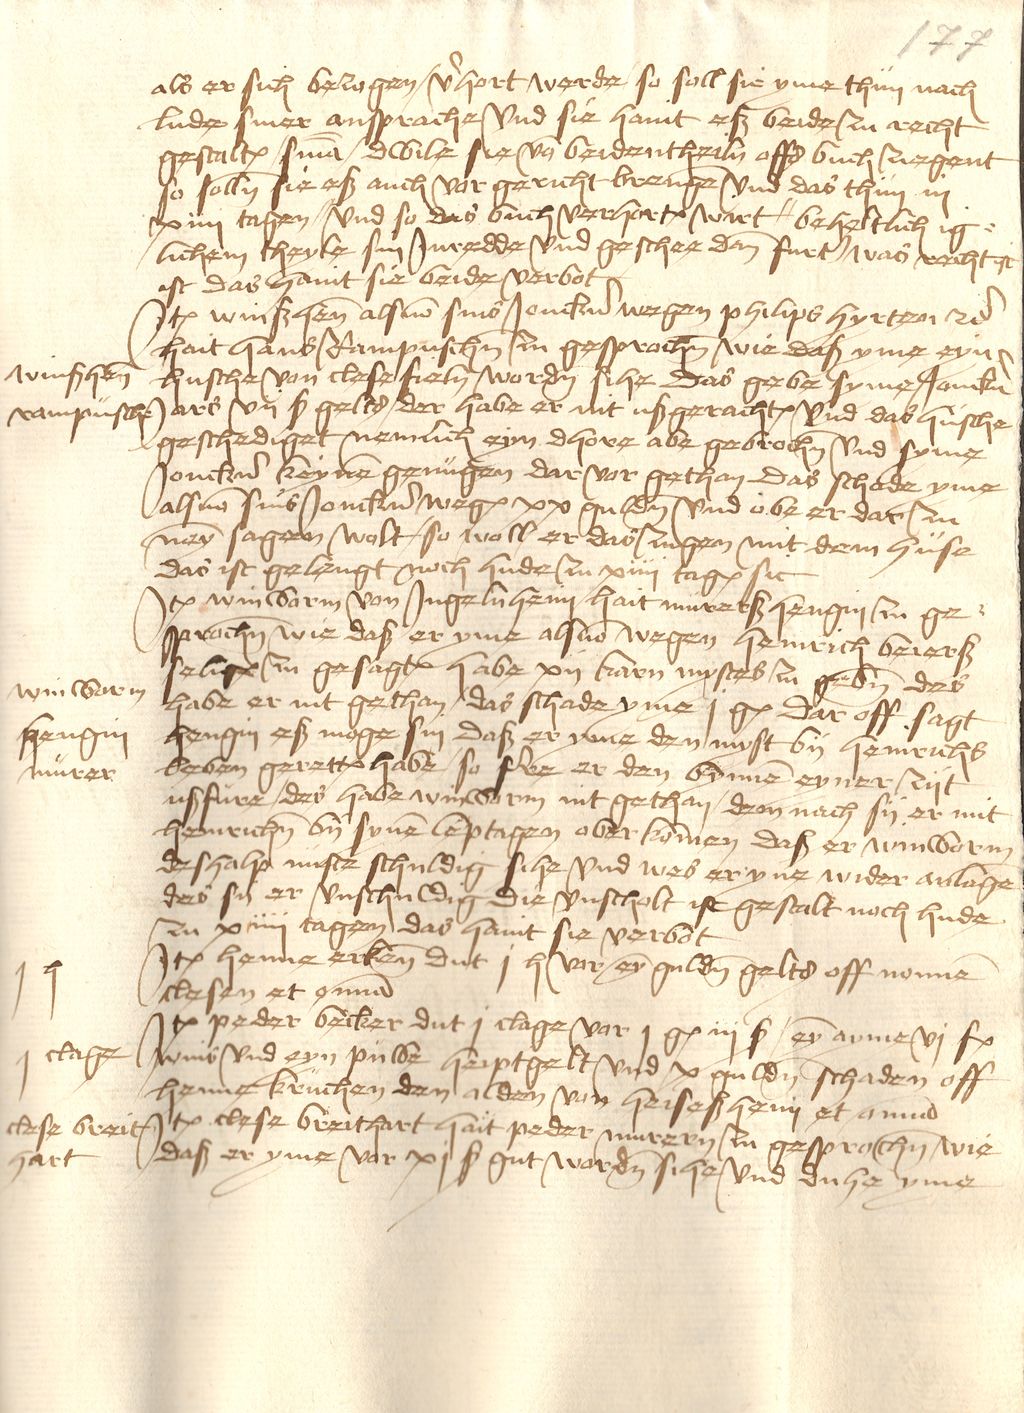 177
als er sich bezogen v'hort werde so soll sie yme thun nach
lude siner ansprache Und sie hant eß beide zu recht
gestalt sma dwile sie von beidentheiln offs buch ziegent
so solln sie eß auch vor gericht brenge Und das thun in
xiiii tagen Und so das buch verhort wirt beheltlich ig=
lichem theyle sin Inredde und geschee dan furt was recht ist
ist das hant sie beide verbot
Jt winßhen als von sins Jonckern wegen philips hyrten
hait hans Rampuschn zu gesprochn wie daß yme eyn
winßhen
rampusche
husche von clese fieln wordn sihe das gebe syme Jonckn
Jars vii ß gelts der habe er nit ußgeracht Und das husche
geschediget nemlich eyn dhore abe gebrochn Und syme
Jonckn keyne genugen dar vor gethan das schade yme
als von sins Jonckn weg xx guldn Und obe er dar zu
ney sagen wolt so woll er das zugen mit dem huse
das ist gelengt noch hude zu xiiii tag sic
Jt winworm von Jngelnheim hait murerß hengin zu ge=
sprochn wie daß er yme als von wegen heinrich beierß
selig zu gesagt habe xii karn mystes zu gebn des
winworm
hengin
murer
habe er nit gethan das schade yme j g dar off sagt
hengin eß moge sin daß er yme den myst by heinrichs
leben gerett habe so ferre er den bynne eyner zijt
ußfure des habe winworm nit gethan dem nach sij er mit
heinrichn by syne leptagen oberkomen daß er winworm
deshalp nuste schuldig sihe Und wes er yne wider anlange
des sij er unschuldig die unscholt ist gestalt noch hude
zu xiiii tagen das hant sie verbot
j h
Jt henne erken dut j h vor ey guldn gelts off nonne
clesen et omnia
j clage
Jt peder becker dut j clage vor j g iij ß ey ayme vj f
wins Und eyn pusse heiptgelt Und x guldn schaden off
henne kruchen den alden von heisesßheim et omnia
clese breit
hart
Jt clese breithart hait peder murern zu gesprochn wie
daß er yme vor xj ß gut wordn sihe Und duhe yme